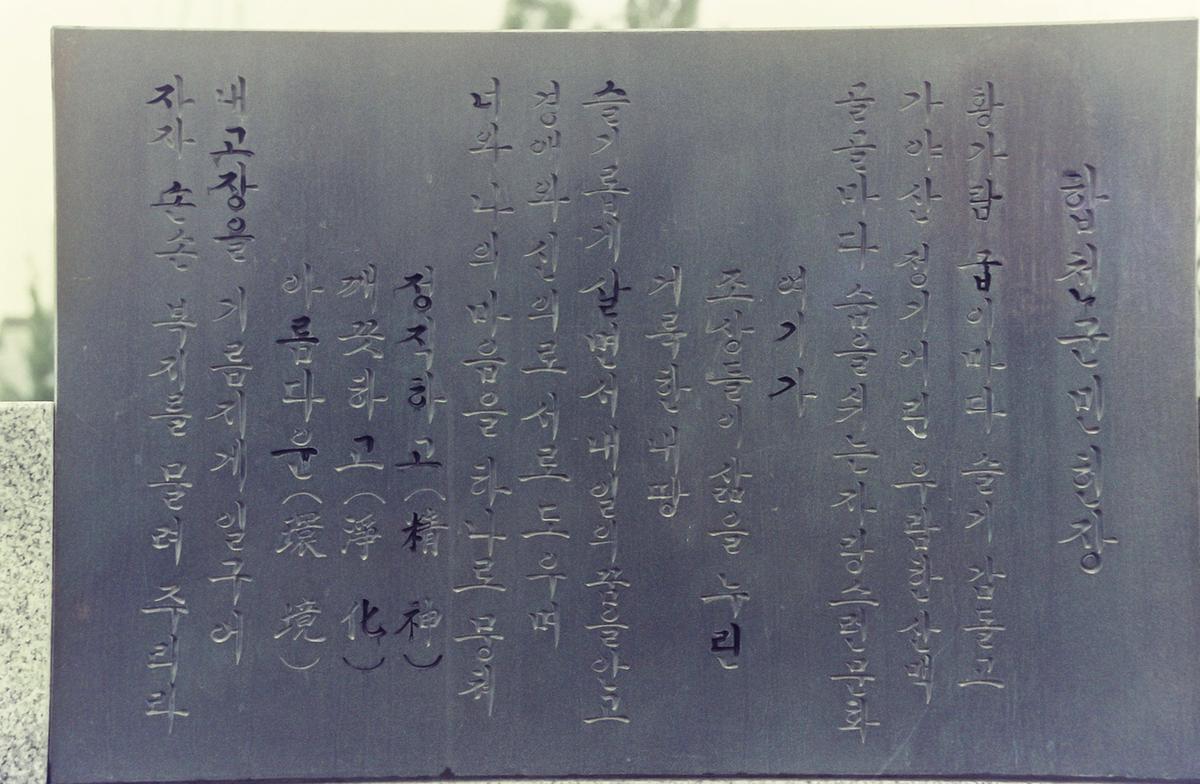 합천군민헌장
황가람 굽이마다 슬기 감돌고
가야산 정기어린 우람한산맥
골골마다 숨을쉬는자랑스런문화
여기가
조상들이 삶을 누린
거룩한터땅
슬기롭게 살면서 내일의 꿈을안고
경애와신의로서로도우며
너와 나의 마음을 하나로 뭉쳐
정직하고(精神)
깨끗하고(淨化)
아름다운(環境)
내고장을 기름지게일구어
자자손손 복지를 물려 주리라